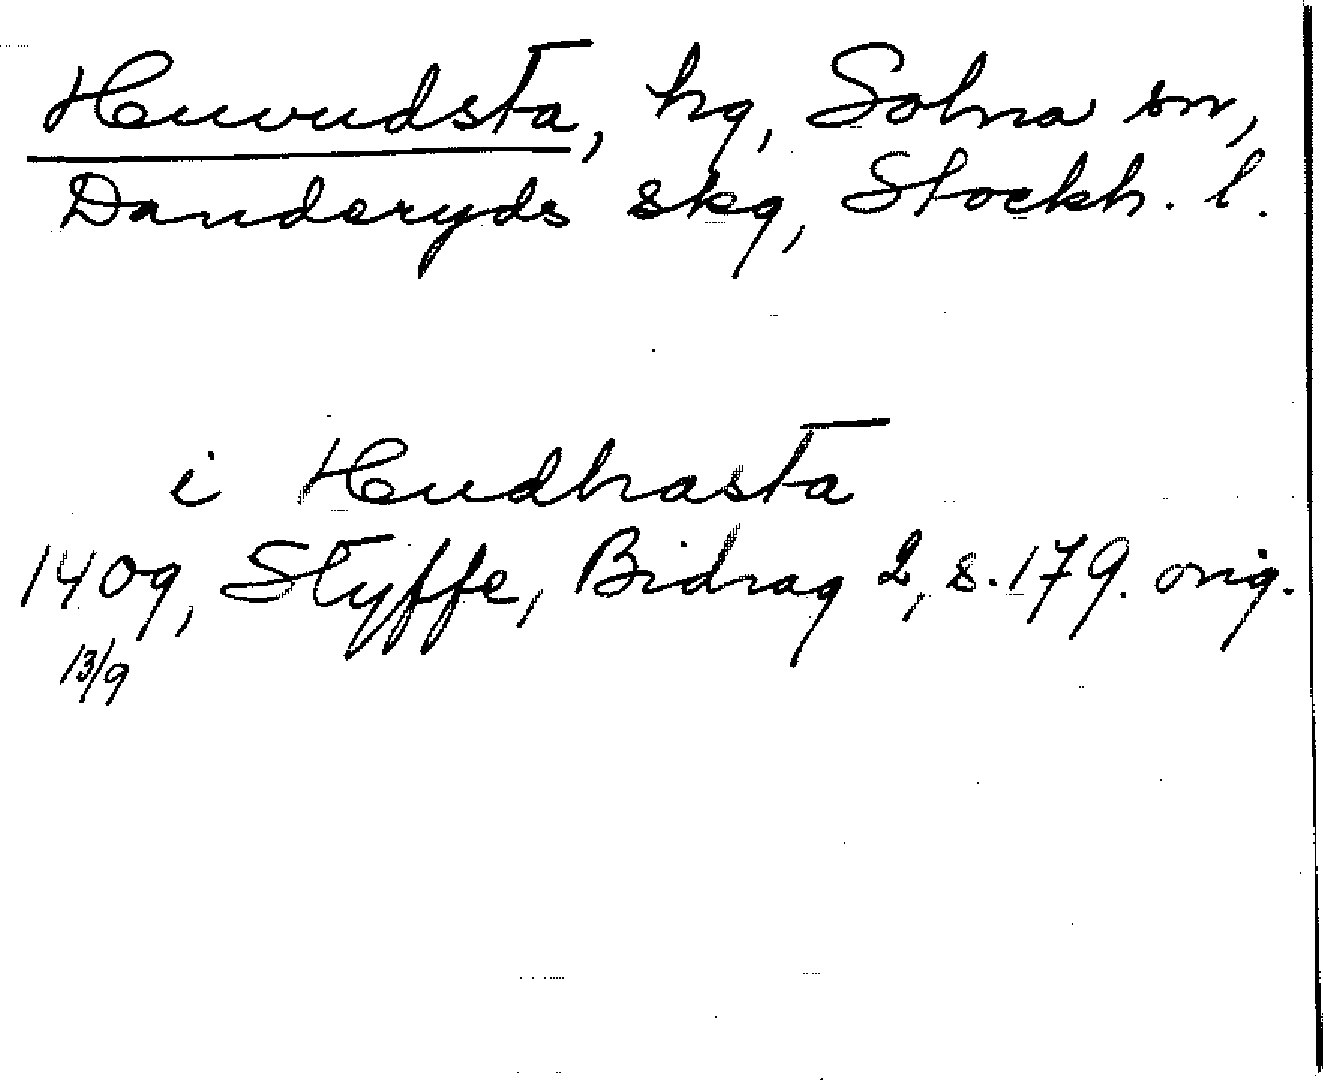 Huvudsta, hg, Solna sn,
Danderyds skg, Stockh. l.
i Hudhrasta
1409, Styffe, Bidrag 2, s. 179. orig.
13/9